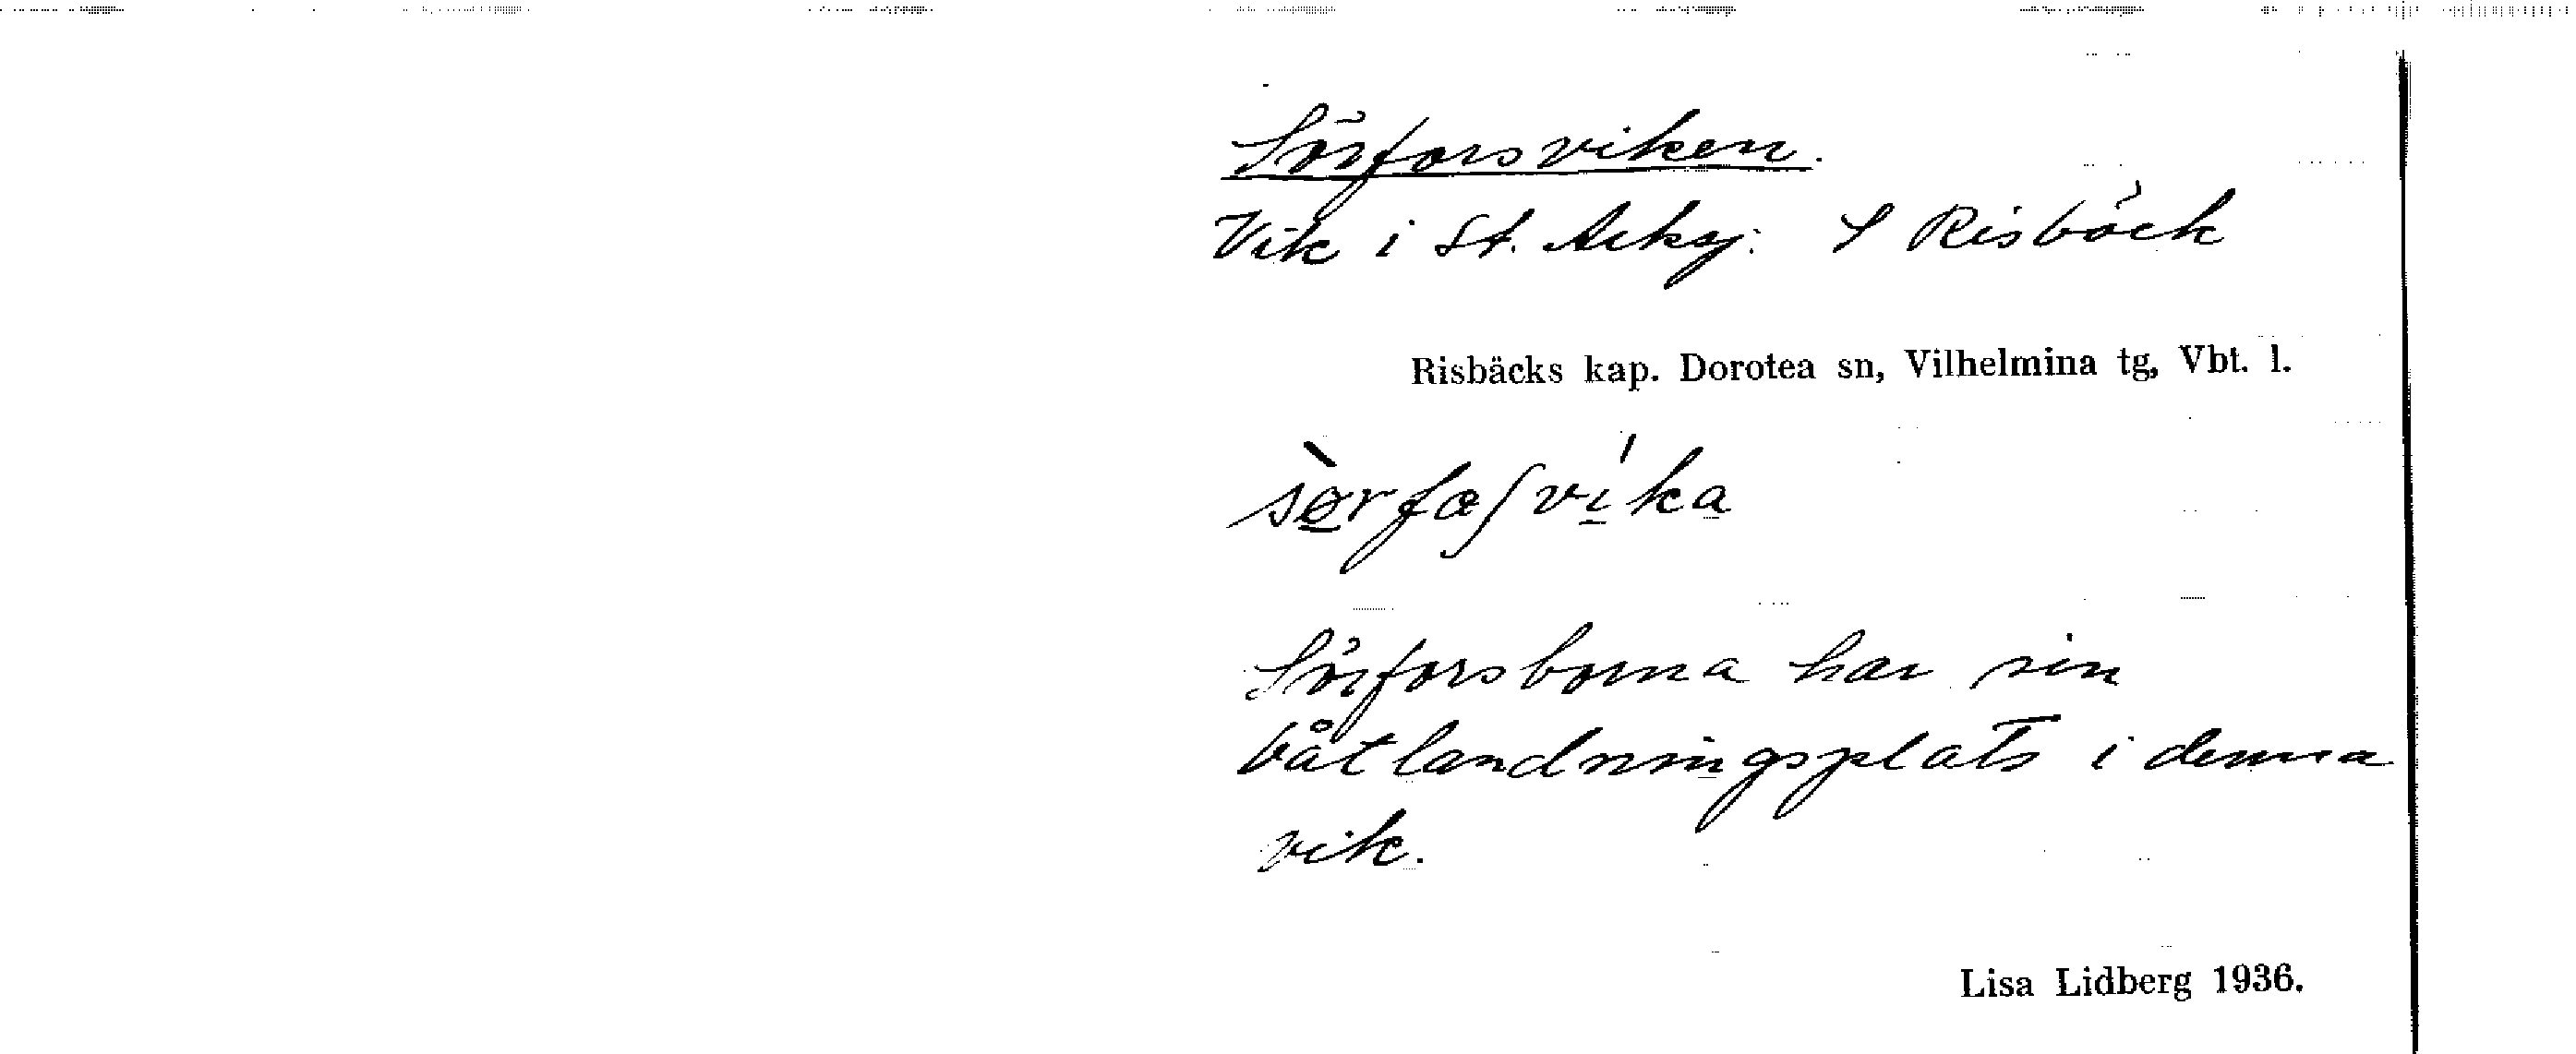 Sörforsviken.
Vik i St. Arksj: S Risbäck
Risbäcks kap. Dorotea sn, Vilhelmina tg, Vbt. l.
sørfaʃvika
Sörforsborna har sin
båtlandningsplats i denna
vik.
Lisa Lidberg 1936.